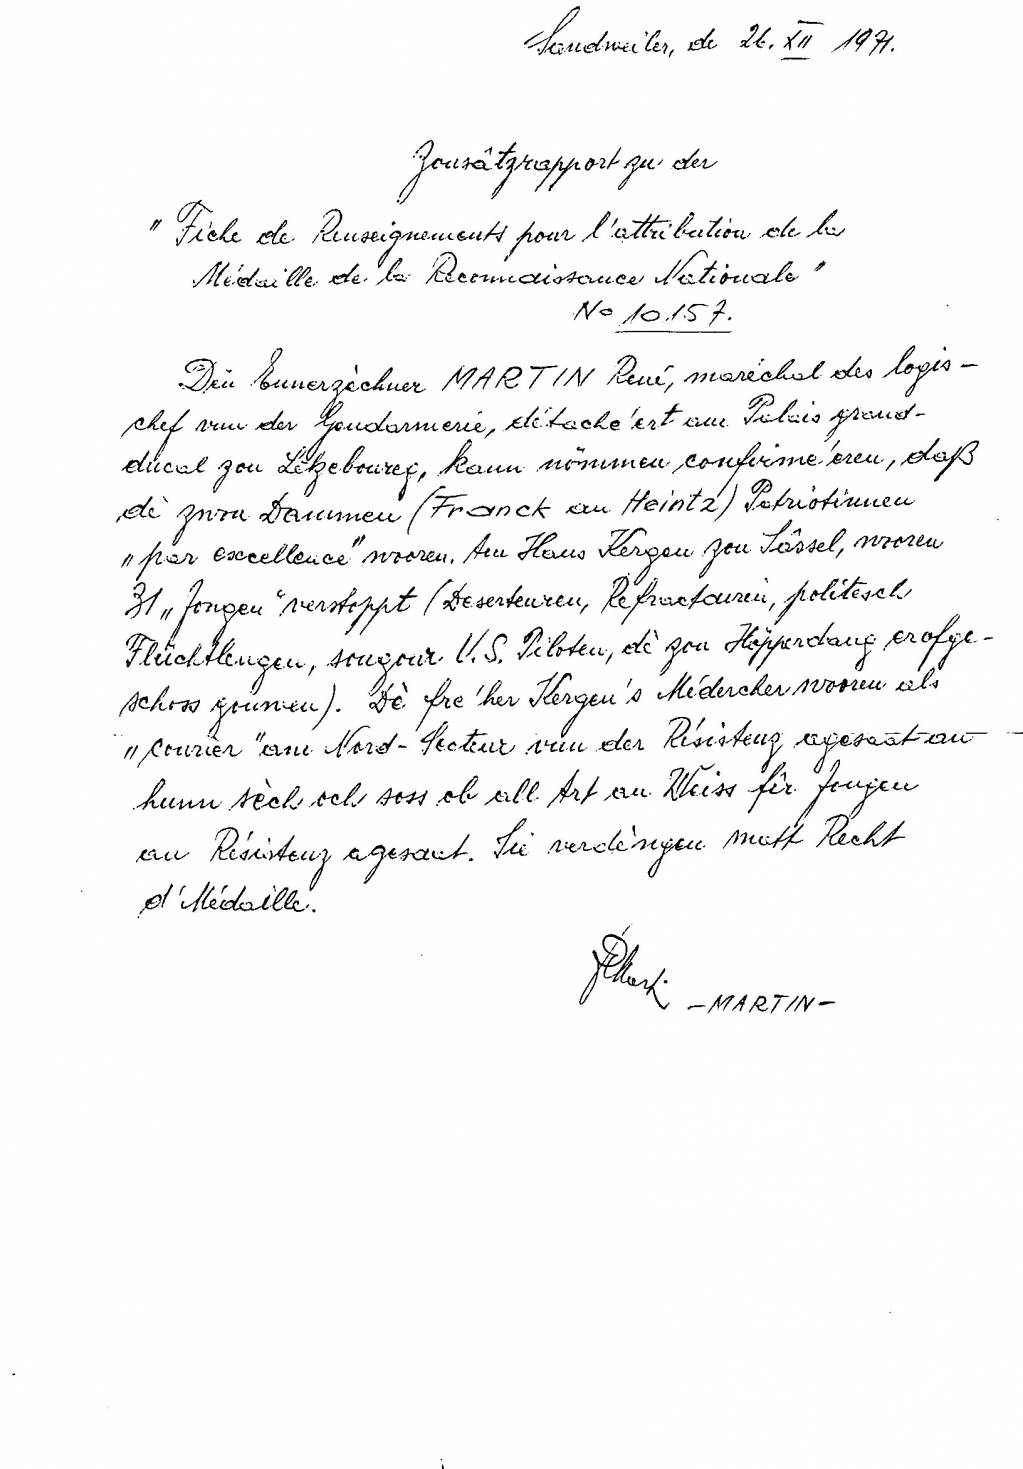 Sandweiler, de 26. XII 1971.
Zousâtzrapport zu der
"Fiche de Renseignements pour l'attribution de la
Médaille de la Reconnaissance Nationale"
No 10.157.
Den Ennerzèchner MARTIN René, maréchal des logis-
chef vun der Gendarmerie, détaché'ert am Palais grand-
ducal zou Lëtzebourg, kann nömmen confirmé'eren, daß
dè zwou Dammen (Franck an Heintz) Patriotinnen
"par excellence" wooren. Am Haus Kergen zou Sâssel, wooren
31 „Jongen" verstoppt (Deserteuren, Refractairen, politesch
Flüchtlengen, sougour U.S. Piloten, dè zou Höpperdang erofge-
schoss gouwen). Dè fre'her Kergen's Médercher wooren als
„courier" am Nord-Secteur vun der Résistenz agesaat an
hunn sèch och soss ob all Art an Weiss fîr Jongen
an Résistenz agesaat. Sie verdéngen matt Recht
d'Médaille.
-MARTIN-